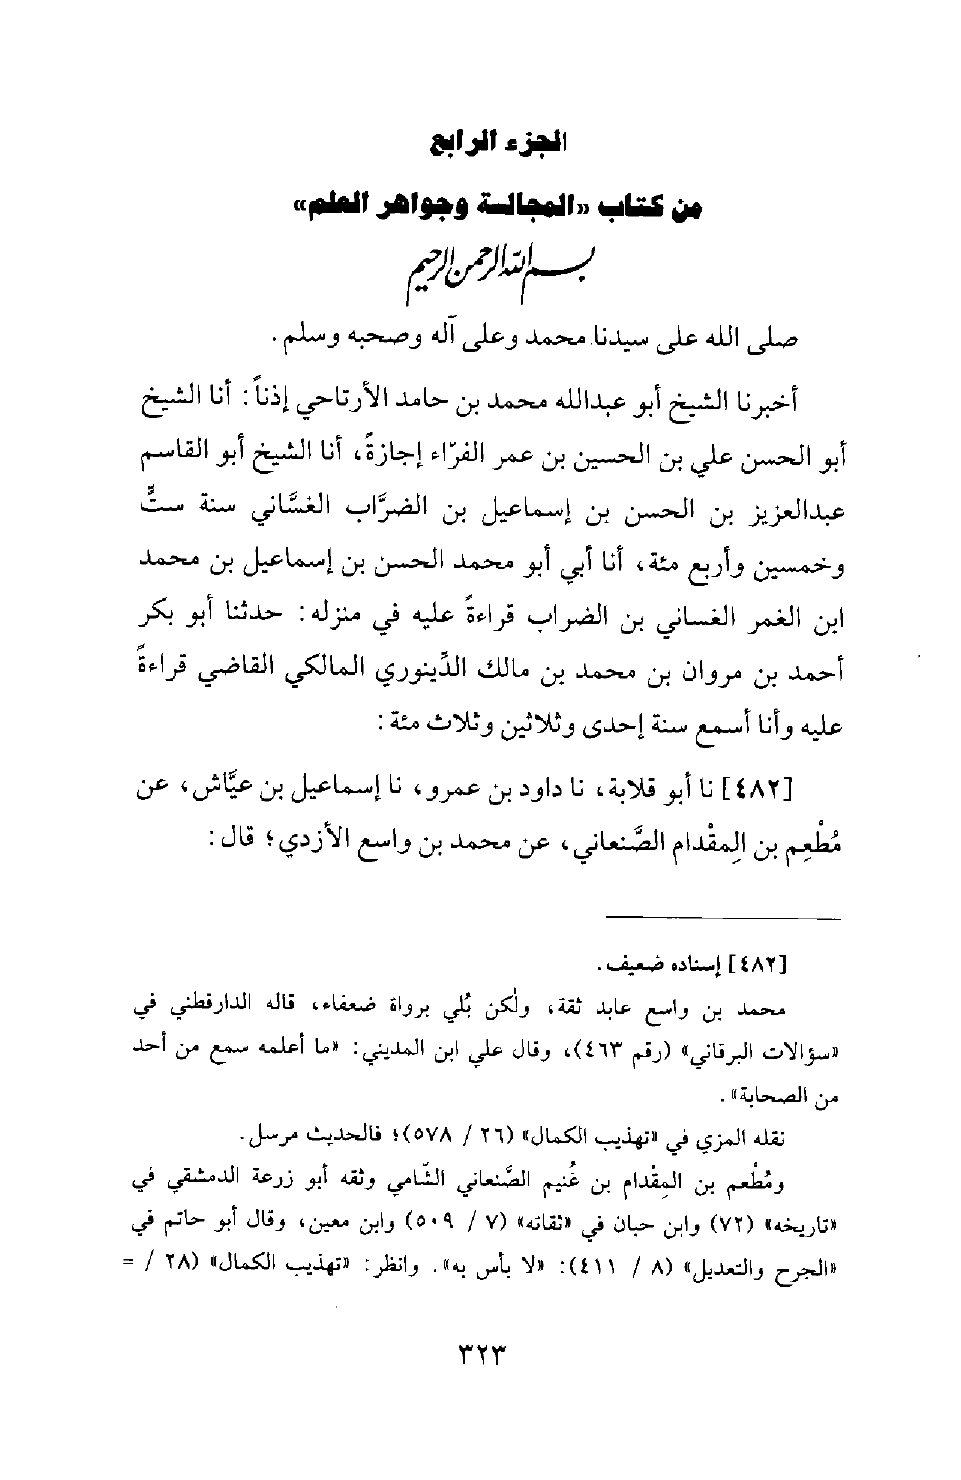 الجزء الرابع
من كتاب «المجالسة وجواهر العلم»
بسم الله الرحمن الرحيم
صلى الله على سيدنا محمد وعلى آله وصحبه وسلم.
أخبرنا الشيخ أبو عبدالله محمد بن حامد الأرتاحي إذناً: أنا الشيخ
أبو الحسن علي بن الحسين بن عمر الفرّاء إجازةً، أنا الشيخ أبو القاسم
عبدالعزيز بن الحسن بن إسماعيل بن الضرَّاب الغسَّاني سنة ستٍّ
وخمسين وأربع مئة، أنا أبي أبو محمد الحسن بن إسماعيل بن محمد
ابن الغمر الغساني بن الضراب قراءةً عليه في منزله: حدثنا أبو بكر
أحمد بن مروان بن محمد بن مالك الدِّينوري المالكي القاضي قراءةً
عليه وأنا أسمع سنة إحدى وثلاثين وثلاث مئة:
[٤٨٢] نا أبو قلابة، نا داود بن عمرو، نا إسماعيل بن عيَّاش، عن
مُطْعِم بن المِقْدام الصَّنعاني، عن محمد بن واسع الأزدي؛ قال:
[٤٨٢] إسناده ضعيف.
محمد بن واسع عابد ثقة، ولكن بُلي برواة ضعفاء، قاله الدارقطني في
«سؤالات البرقاني» (رقم ٤٦٣)، وقال علي ابن المديني: «ما أعلمه سمع من أحد
من الصحابة».
نقله المزي في «تهذيب الكمال» (٢٦ / ٥٧٨)؛ فالحديث مرسل.
ومُطْعم بن المِقْدام بن غُنيم الصَّنعاني الشَّامي وثقه أبو زرعة الدمشقي في
«تاريخه» (٧٢) وابن حبان في «ثقاته» (٧ / ٥٠٩) وابن معين، وقال أبو حاتم في
«الجرح والتعديل» (٨ / ٤١١): «لا بأس به». وانظر: «تهذيب الكمال» (٢٨ / =
٣٢٣